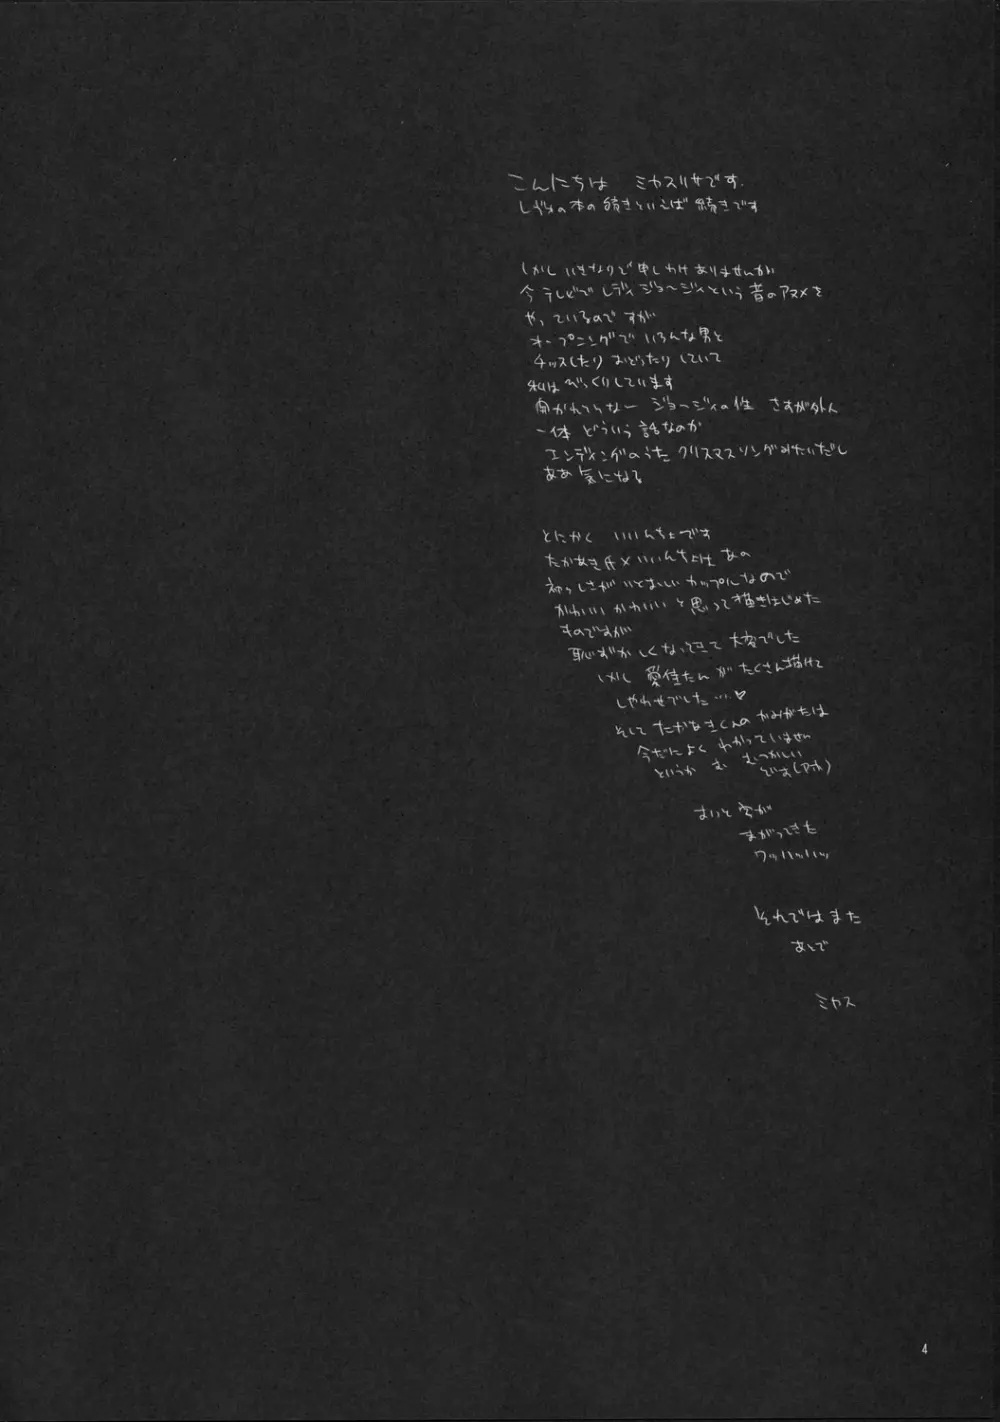 こんにちは ミカヅリサです.
レヴィの本の続きといえば続きです
しかし いきなりで申しわけありませんが
今テレビでレディジョージィという昔のアニメを
やっているのですが
オープニングでいろんな男と
チッスしたり おどったりしていて
私はびっくりしています
ジョージィの性 さすが外人
一体 どういう話なのか
エンディングのうた クリスマスソングみたいだし
ああ 気になる
とにかく いいんちょです
たかあき氏×いいんちょは あの
初っしさがいとおしいカップルなので
かわいい かわいい と思って描きはじめた
ものですが
恥ずかしくなってきて 大変でした
しかし 愛佳たんが たくさん描けて
しやわせでした…♡
そして たかあきくんの かみがたは
今だによく わかっていません
というか む むつかしい
です
字が
まがってきた
ワッハッハッ
それではまた
あとで
ミカヅ
4